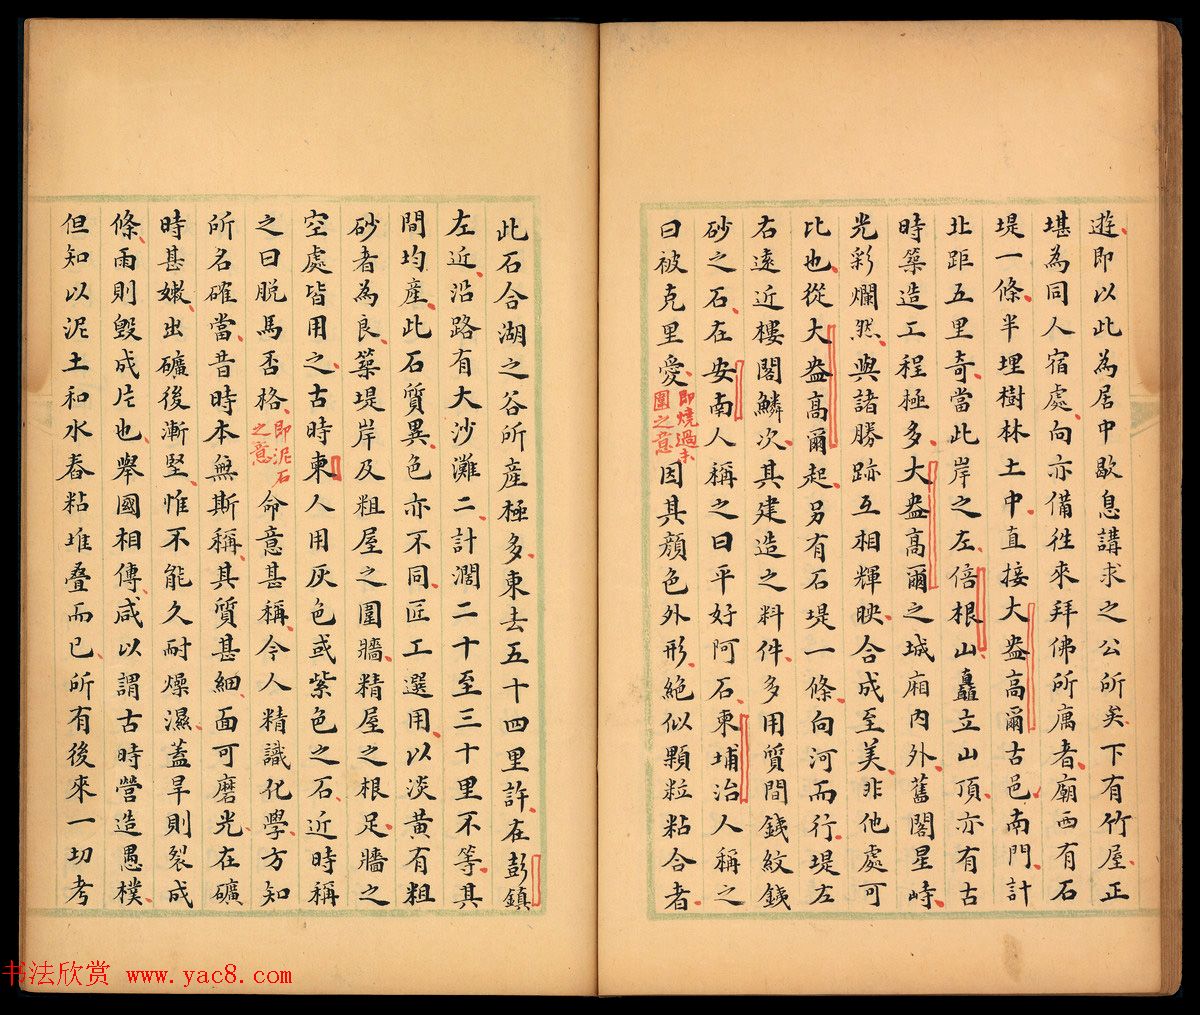 遊即以此為居中歇息講求之公所矣下有竹屋正
堪為同人宿處向亦備徃來拜佛所庽者廟西有石
堤一條半埋樹林土中直接大盎高爾古邑南門計
北距五里奇當此岸之左倍根山矗立山頂亦有古
時築造工程極多大盎高爾之城廂內外舊閣星峙
光彩爛然與諸勝跡互相輝映合成至美非他處可
比也從大盎高爾起另有石堤一條向河而行堤左
右遠近樓閣鱗次其建造之料件多用質間錢紋錢
砂之石在安南人稱之曰平好阿石柬埔治人稱之
曰被克里愛即燒過未圍之意因其顏色外形絕似顆粒粘合者
此石合湖之谷所產極多東去五十四里許在彭鎮
左近沿路有大沙灘二計濶二十至三十里不等其
間均產此石質異色亦不同匠工選用以淡黄有粗
砂者為良築堤岸及粗屋之圍牆精屋之根足牆之
空處皆用之古時柬人用灰色或紫色之石近時稱
之曰脱馬否格即泥石之意命意甚稱今人精識化學方知
所名確當昔時本無斯稱其質甚細面可磨光在礦
時甚嫩出礦後漸堅惟不能久耐燥濕蓋旱則裂成
條雨則毀成片也舉國相傳咸以謂古時營造愚樸
但知以泥土和水舂粘堆叠而已所有後來一切考
书法欣赏 www.yac8.com